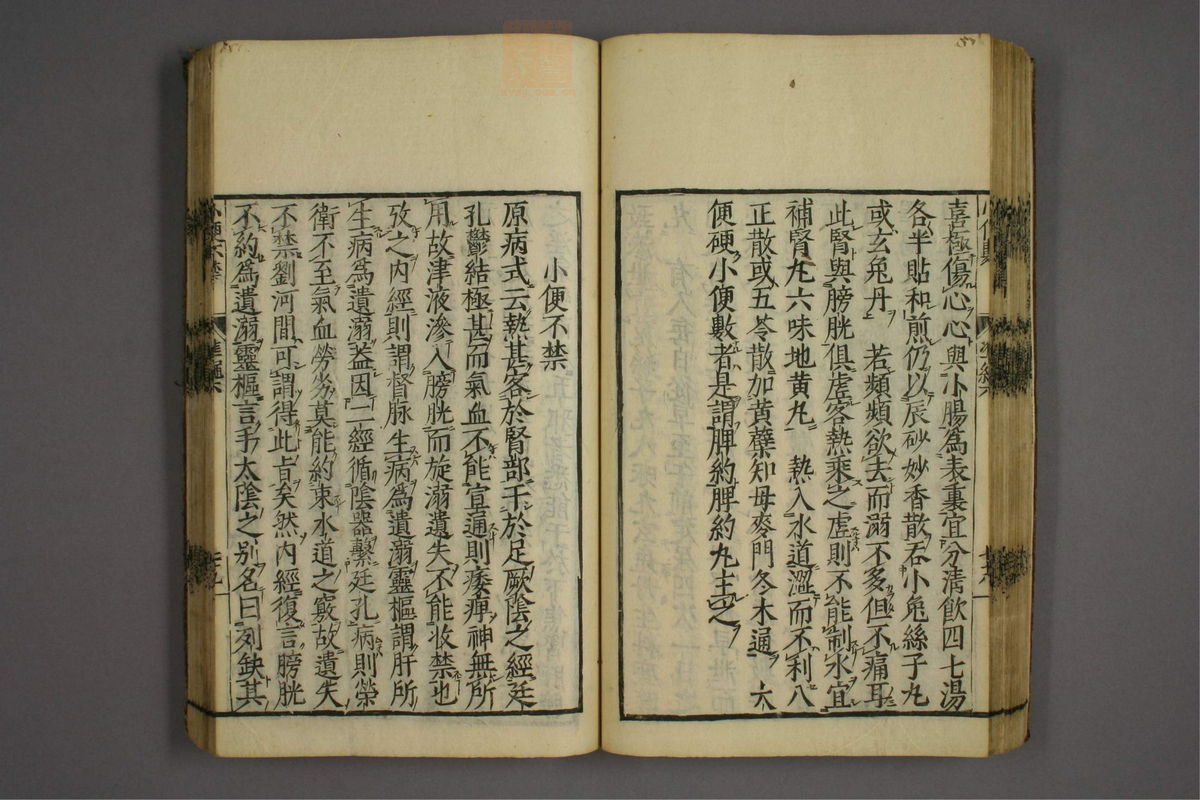 喜極傷心心與小腸為表裏宜分清飲四七湯
各半貼和煎仍以辰砂妙香散吞小兔絲子丸
或玄兔丹　若頻頻欲去而溺不多但不痛耳
此腎與膀胱俱虛客熱乘之虛則不能制水宜
補腎丸六味地黄丸　熱入水道澀而不利八
正散或五苓散加黄蘗知母麥門冬木通　大
便硬小便數者是謂脾約脾約丸主之
小便不禁
原病式云熱甚客於腎部干於足厥陰之經廷
孔鬱結極甚而氣血不能宣通則痿痺神無所
用故津液滲入膀胱而旋溺遺失不能收禁也
攷之内經則謂督脉生病爲遺溺靈樞謂肝所
生病爲遺溺蓋因二經循陰器繫廷孔病則榮
衛不至氣血勞劣莫能約束水道之竅故遺失
不禁劉河間可謂得此旨矣然内經復言膀胱
不約爲遺溺靈樞言手太陰之别名曰列缺其